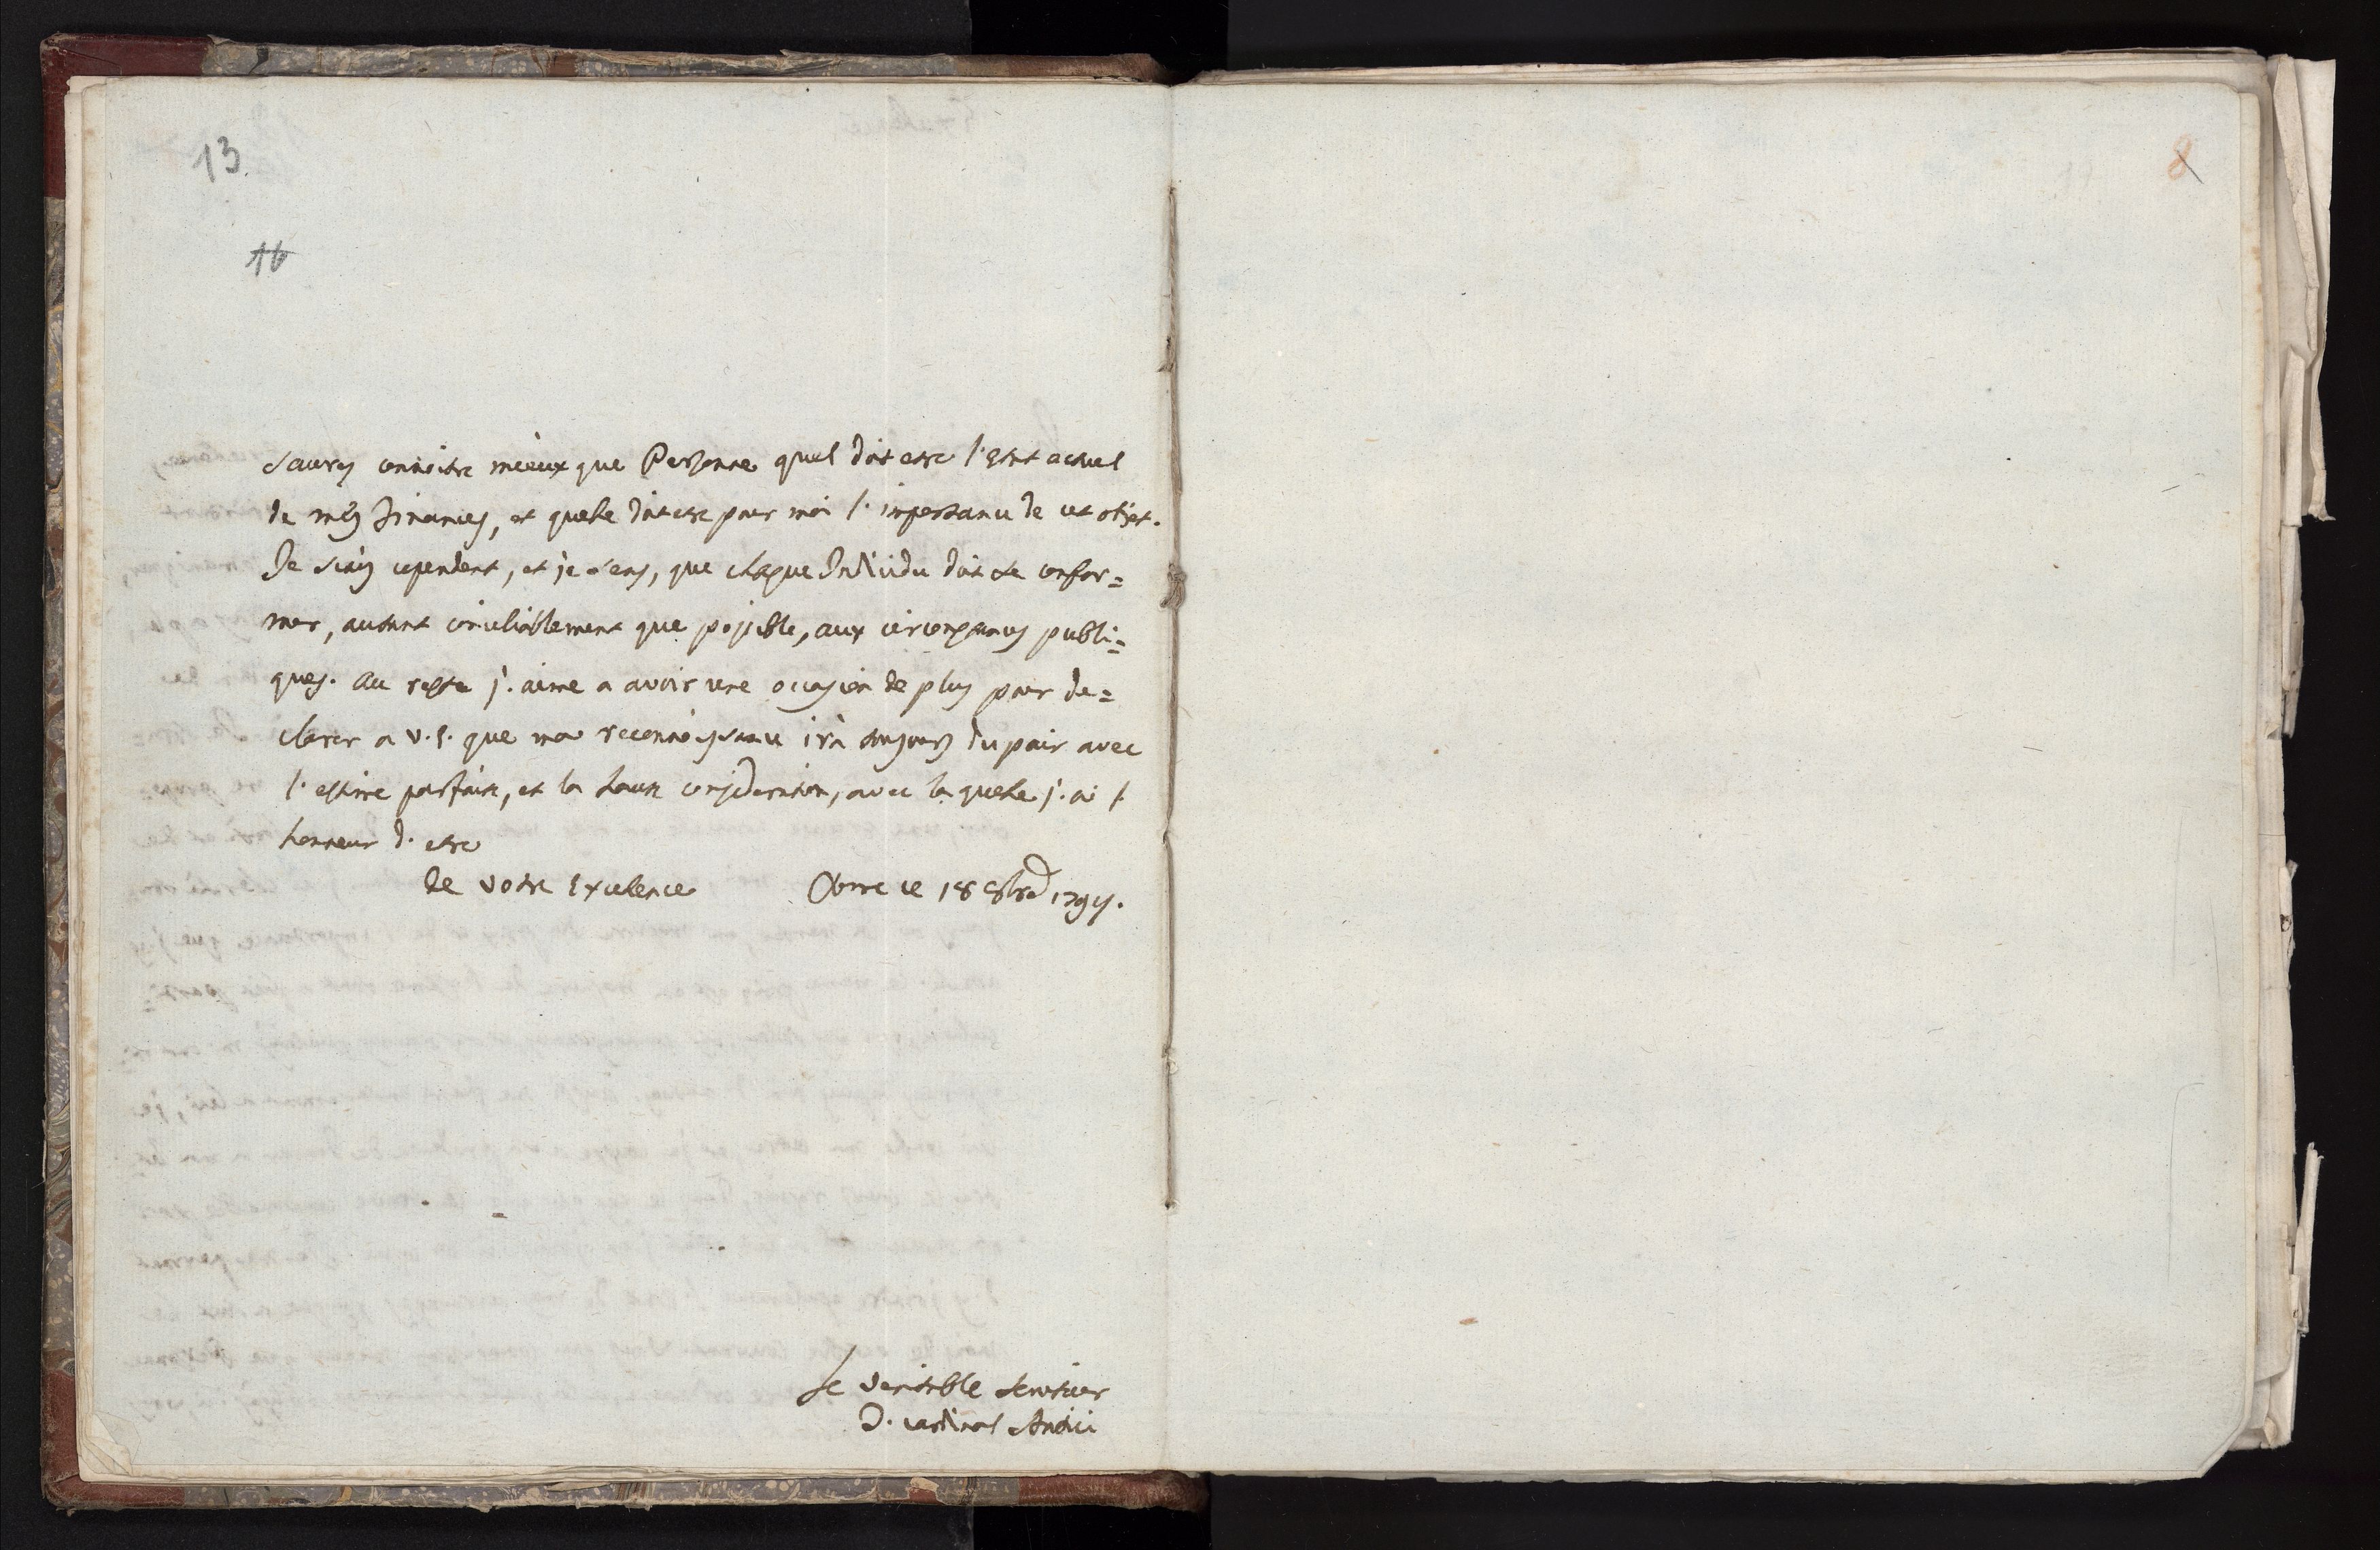 13.
16
saurez connoitre mieux que Personne quel doit etre l'Etat actuel
de mes Finances, et quelle doit etre pour moi l'importance de cet objet.
Je scais cependent, et je sens, que chaque Individu doit se confor=
mer, autant conciliablement que possible, aux circonstances publi=
ques. Au reste j'aime a avoir une occasion de plus pour de=
clarer a V.E. que ma reconnoissance irà toujours du pair avec
l'estime parfaite, et la haute consideration, avec la quelle j'ai l'
honneur d'etre
de Votre Excelence Rome ce 18 8bre
Le veritable serviteur
cardinal Antici
8